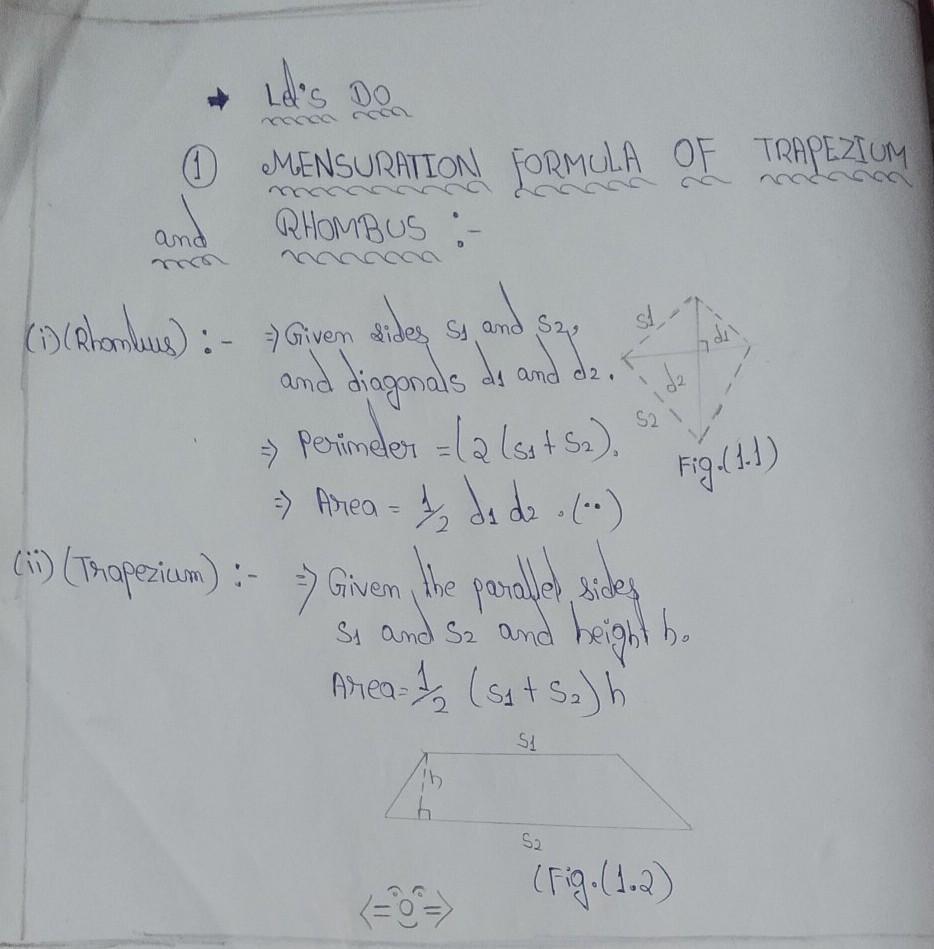 → Let's DO
① MENSURATION FORMULA OF TRAPEZIUM
and RHOMBUS :-
(i) (Rhombus) :- ⇒ Given sides s1 and s2,
and diagonals d1 and d2.
s1
d1
d2
s2
Fig.(1.1)
⇒ Perimeter = (2 (s1 + s2).
⇒ Area = 1/2 d1 d2 . (..)
(ii) (Trapezium) :- ⇒ Given, the parallel sides
s1 and s2 and height h.
Area = 1/2 (s1 + s2) h
s1
h
s2
(Fig.(1.2)